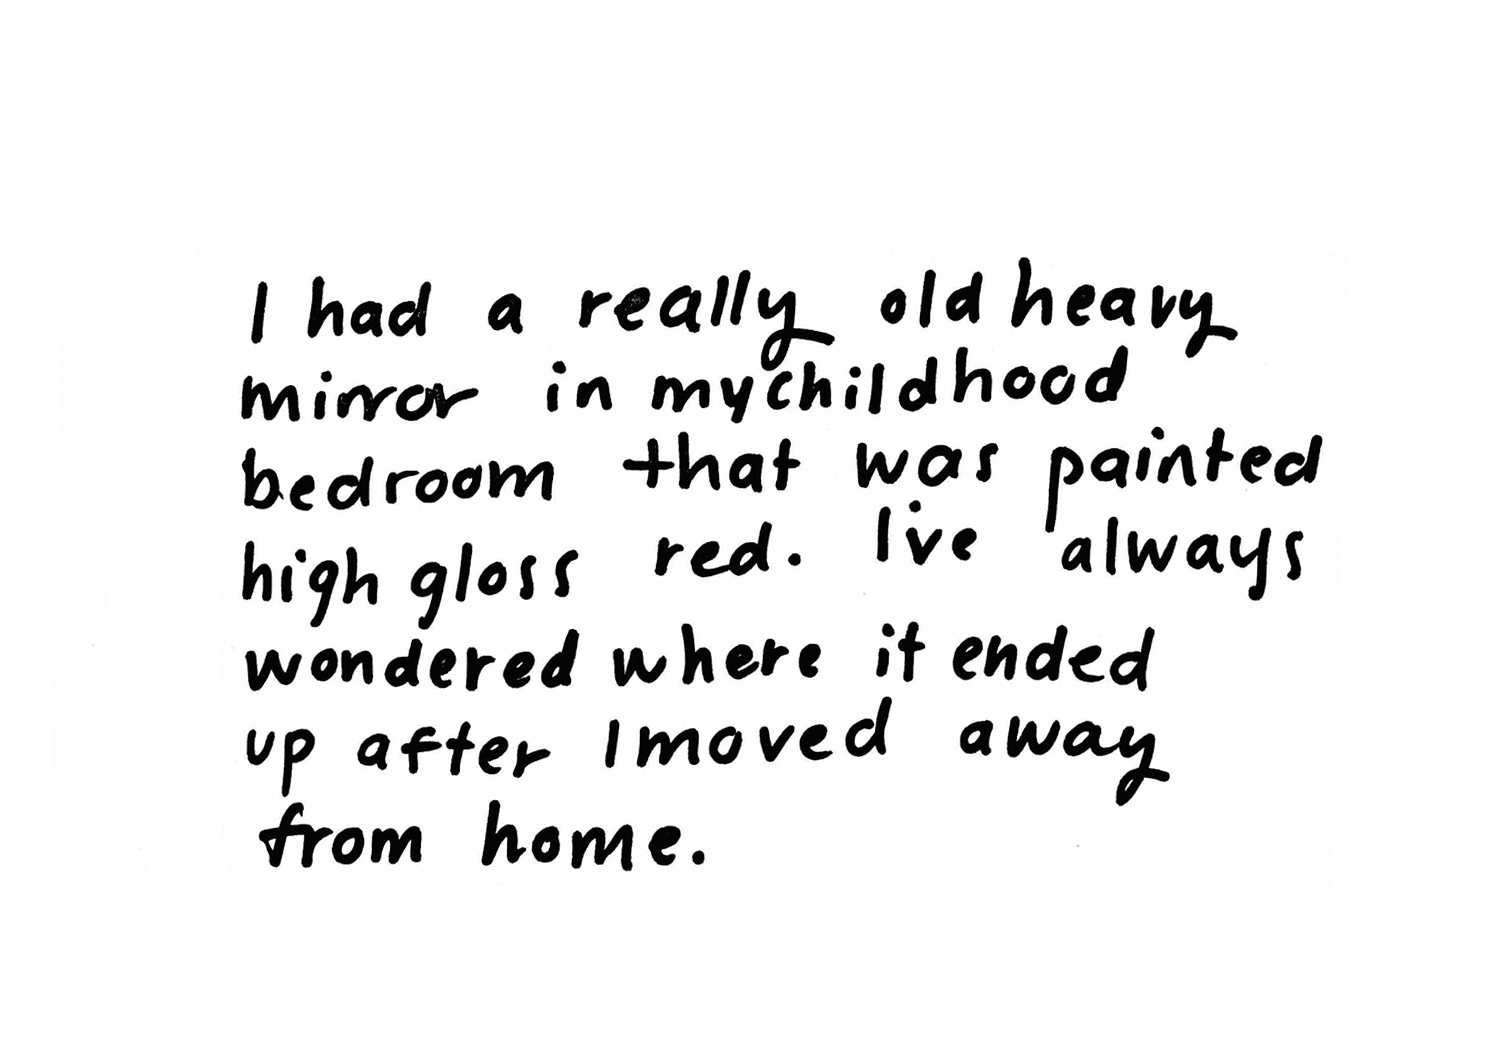 I had a really old heavy
mirror in my childhood
bedroom that was painted
high gloss red. I've always
wondered where it ended
up after I moved away
from home.